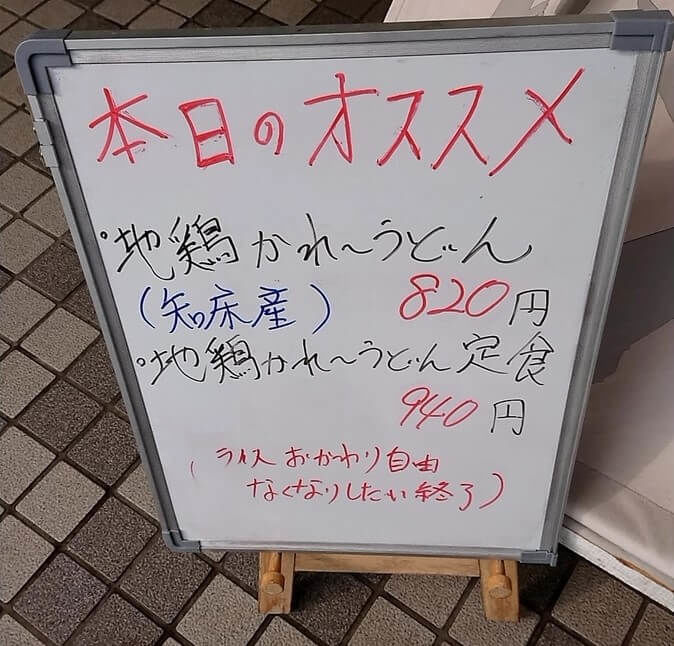 本日のオススメ
・地鶏かれ〜うどん
(知床産) 820円
・地鶏かれ〜うどん定食
940円
(ライスおかわり自由
なくなりしだい終了)